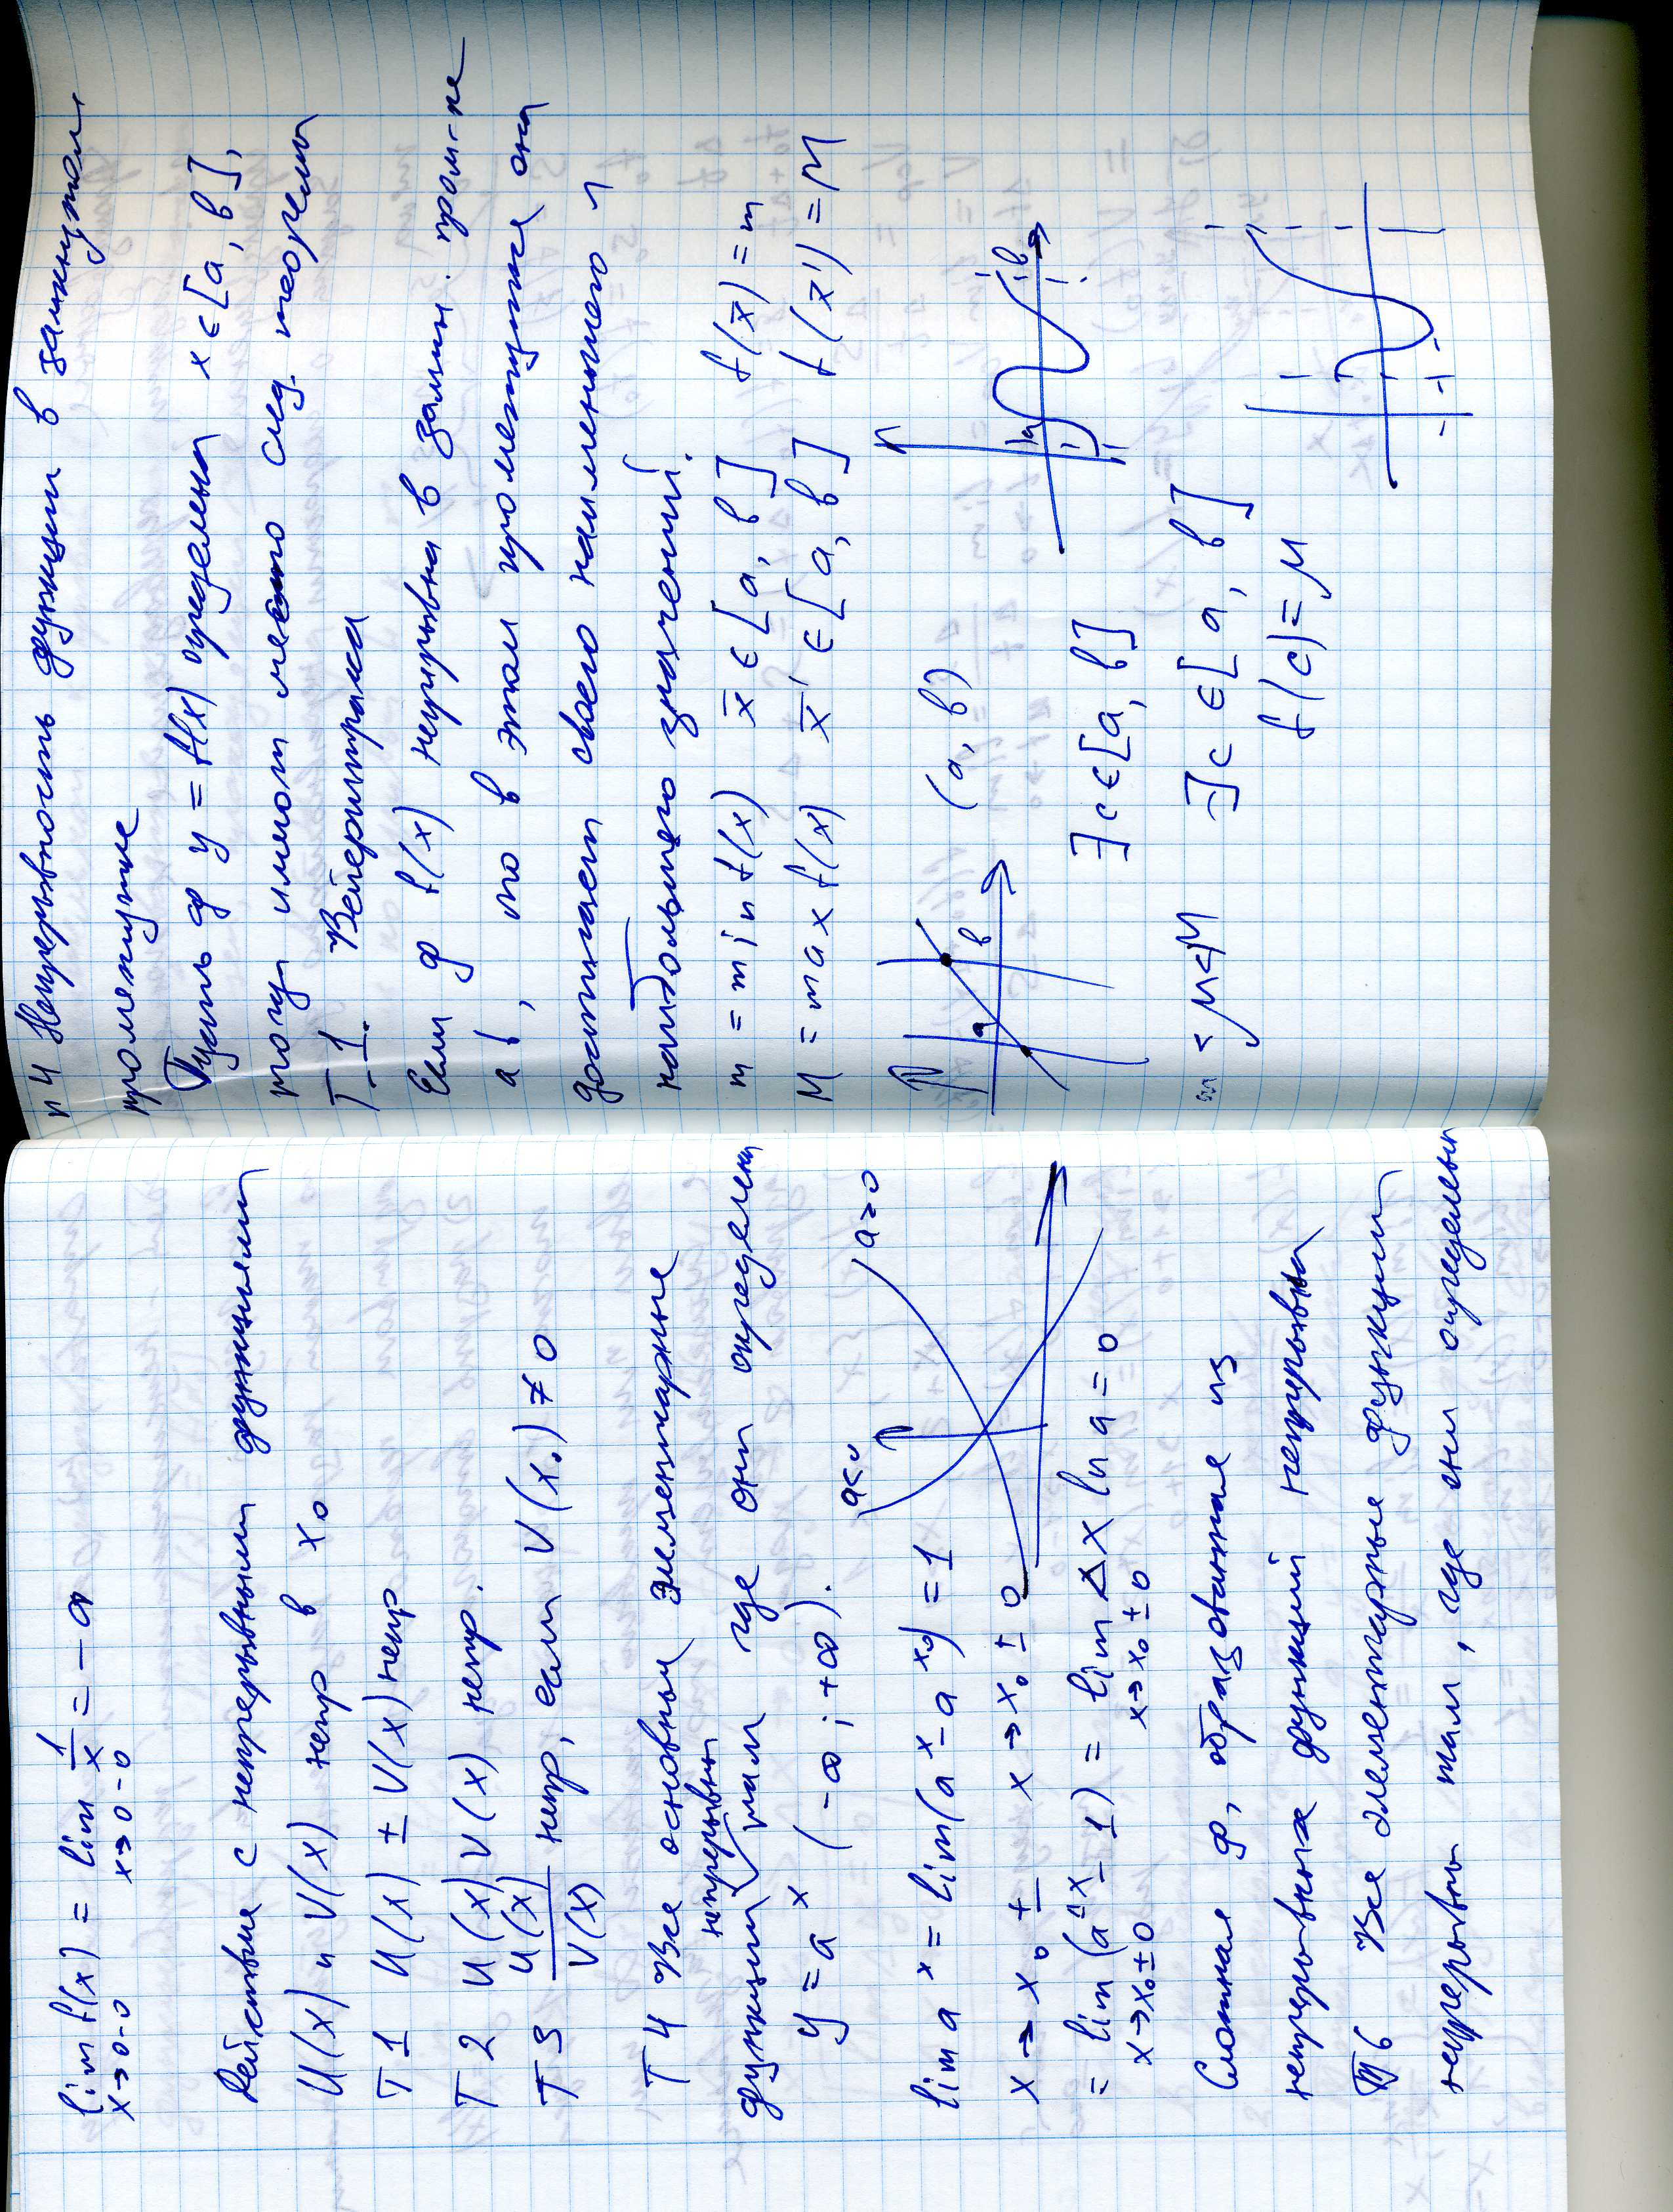 lim f(x) = lim 1/x = -∞
x→0-0 x→0-0
Действие с непрерывными функциями
U(x) и V(x) непр в x₀
Т 1 U(x) ± V(x) непр
Т 2 U(x) V(x) непр.
Т 3 U(x)/V(x) непр, если V(x₀) ≠ 0
Т 4 Все основные элементарные
непрерывны
функции там где они определены
y = a^x (-∞; +∞).
a<0
a>0
lim a^x = lim(a^x - a^x₀) = 1
x→x₀ ± x→x₀ ± 0
= lim (a^Δx - 1) = lim Δx ln a = 0
x→x₀±0 x→x₀±0
Сложная ф, образованная из
непрерывных функций непрерывна
Т 6 Все элементарные функции
непрерывны там, где они определены
п 4 Непрерывность функции в замкнутом
промежутке
Пусть ф y = f(x) определена x ∈ [a, b],
тогда имеют место след. теоремы
Т-1. Вейерштрасса
Если ф f(x) непрерывна в замкн. пром-ке
a b, то в этом промежутке она
достигает своего наименьшего и
наибольшего значений.
m = min f(x) x̄ ∈ [a, b] f(x̄) = m
M = max f(x) x̄' ∈ [a, b] f(x̄') = M
a
b
(a, b)
a
b
∃ c ∈ [a, b]
m < μ < M ∃ c ∈ [a, b]
f(c) = μ